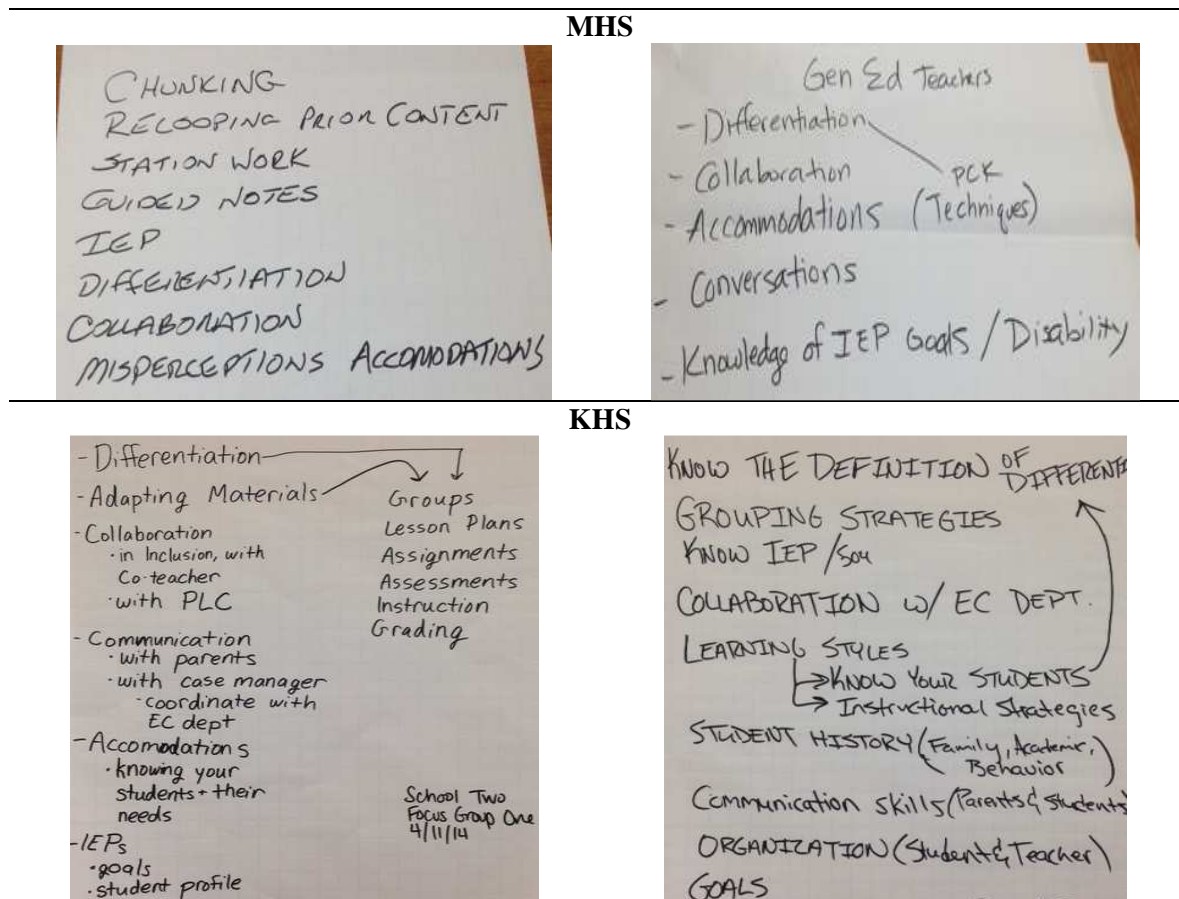 MHS
CHUNKING
RELOOPING PRIOR CONTENT
STATION WORK
GUIDED NOTES
IEP
DIFFERENTIATION
COLLABORATION
MISPERCEPTIONS ACCOMODATIONS
Gen Ed Teachers
- Differentiation
- Collaboration PCK
- Accommodations (Techniques)
- Conversations
- Knowledge of IEP Goals / Disability
KHS
- Differentiation
- Adapting Materials
- Collaboration
· in Inclusion, with
Co-teacher
· with PLC
- Communication
· with parents
· with case manager
- coordinate with
EC dept
- Accomodations
· knowing your
students + their
needs
- IEPs
· goals
· student profile
Groups
Lesson Plans
Assignments
Assessments
Instruction
Grading
School Two
Focus Group One
4/11/14
KNOW THE DEFINITION OF
DIFFERENTI
GROUPING STRATEGIES
KNOW IEP/504
COLLABORATION w/ EC DEPT.
LEARNING STYLES
KNOW YOUR STUDENTS
Instructional Strategies
STUDENT HISTORY (Family, Academic,
Behavior)
Communication skills (Parents & Students)
ORGANIZATION (Student & Teacher)
GOALS